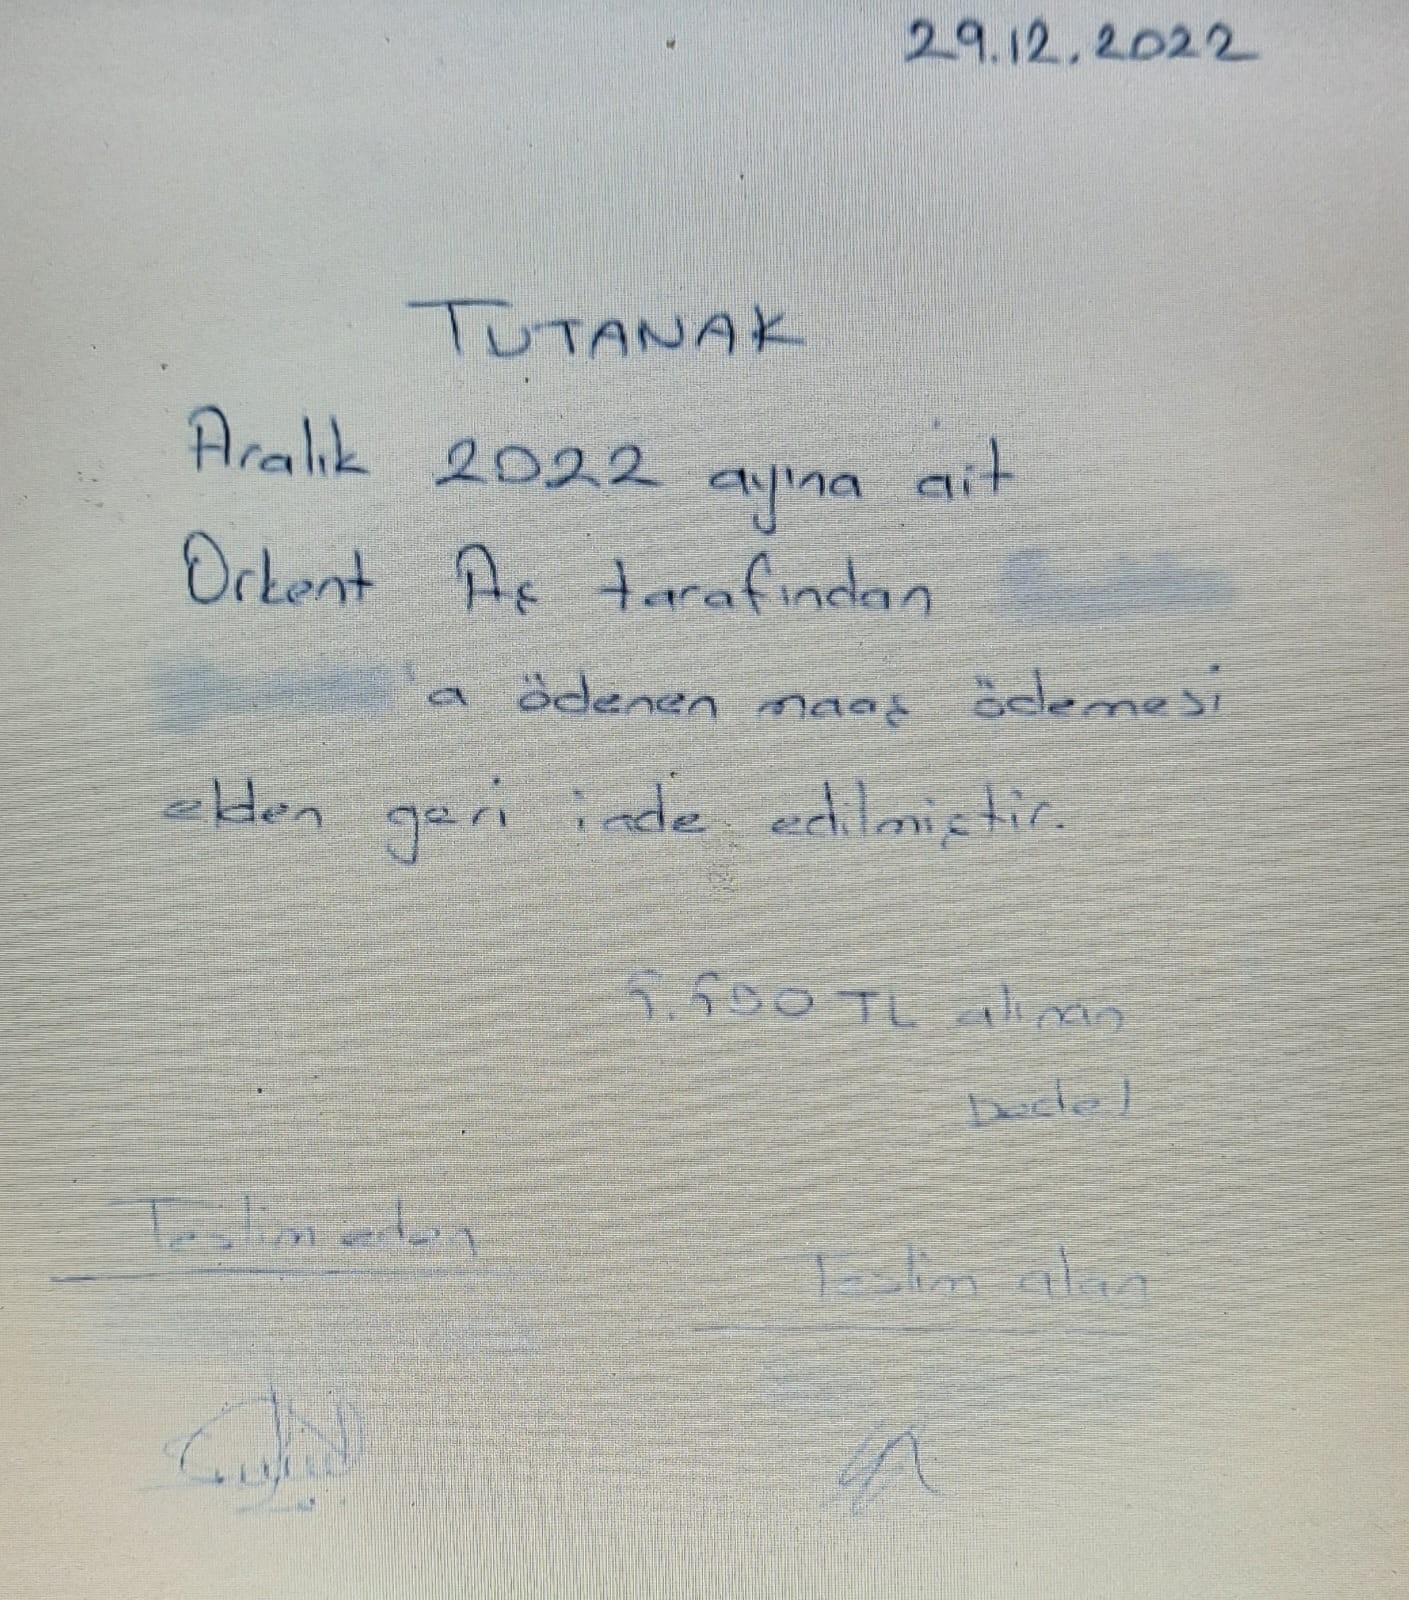 29.12.2022
TUTANAK
Aralık 2022 ayına ait
Orkent Aş tarafından
'a ödenen maaş ödemesi
elden geri iade edilmiştir.
5.500 TL alınan
bedel
Teslim eden
Teslim alan